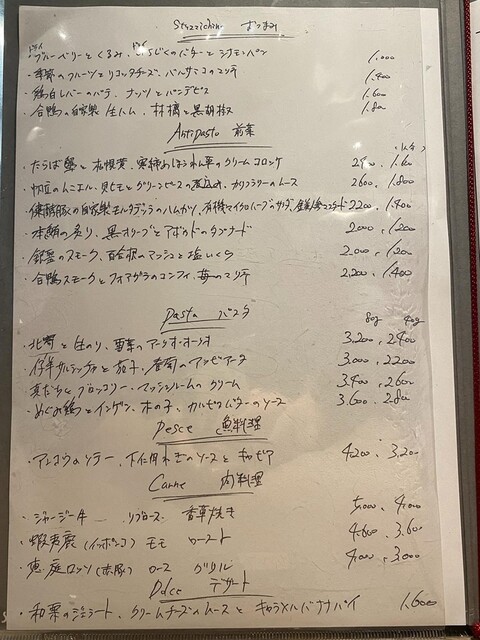 Stuzzichini おつまみ
ドライ ドライ
・ブルーベリーとくるみ、いちじくのバターとシナモンパン 1.000
・季節のフルーツとリコッタチーズ、バルサミコのマリネ 1.400
・鶏白レバーのパテ、ナッツとパンデピス 1.600
・合鴨の自家製生ハム、林檎と黒胡椒 1.800
Antipasto 前菜
・たらば蟹と ほうれん草のクリームコロッケ
・帆立のムニエル、 とグリーンピースの煮込み、カリフラワーのムース 2600 . 1.800
豚の自家製モルタデッラのハムカツ、有機マイクロハーブサラダ、 マスタード 2200 . 1.400
・本鮪の炙り、黒オリーブとアボカドのタプナード 2.000 . 1.200
・ のスモーク、百合根のマッシュと塩いくら 2.000 . 1.200
・合鴨スモークとフォアグラのコンフィ、苺のマリネ 2.200 . 1.400
Pasta パスタ 80g 40g
・北寄と生のり、 のアーリオ・オーリオ 3.200 . 2400
・仔羊サルシッチャと茄子、 のアラビアータ 3.000 . 2.200
・真だちとブロッコリー、マッシュルームのクリーム 3.400 . 2600
・めぐみ鶏とインゲン、木の子、カルピスバターのソース 3.600 . 2.800
Pesce 魚料理
・アンコウのソテー、下仁田ネギのソースと キャビア 4200 . 3.200
Carne 肉料理
・ジャージー牛 リブロース 香草焼き 5.000 . 4.000
・蝦夷鹿 モモ ロースト 4.600 . 3.600
・恵庭ロッソ(赤豚) ロース グリル 4.000 . 3.000
Dolce デザート
・和栗のジェラート、クリームチーズのムースと キャラメルバナナパイ 1.600